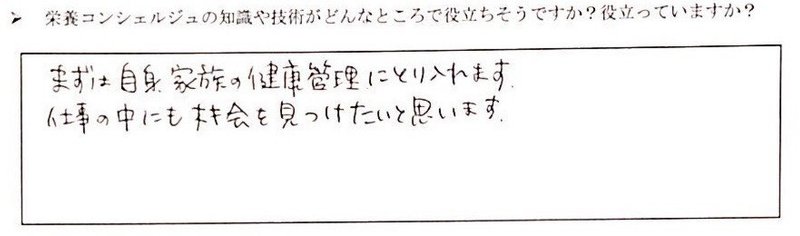 ➢ 栄養コンシェルジュの知識や技術がどんなところで役立ちそうですか？役立っていますか？
まずは自身、家族の健康管理にとり入れます。
仕事の中にも機会を見つけたいと思います。